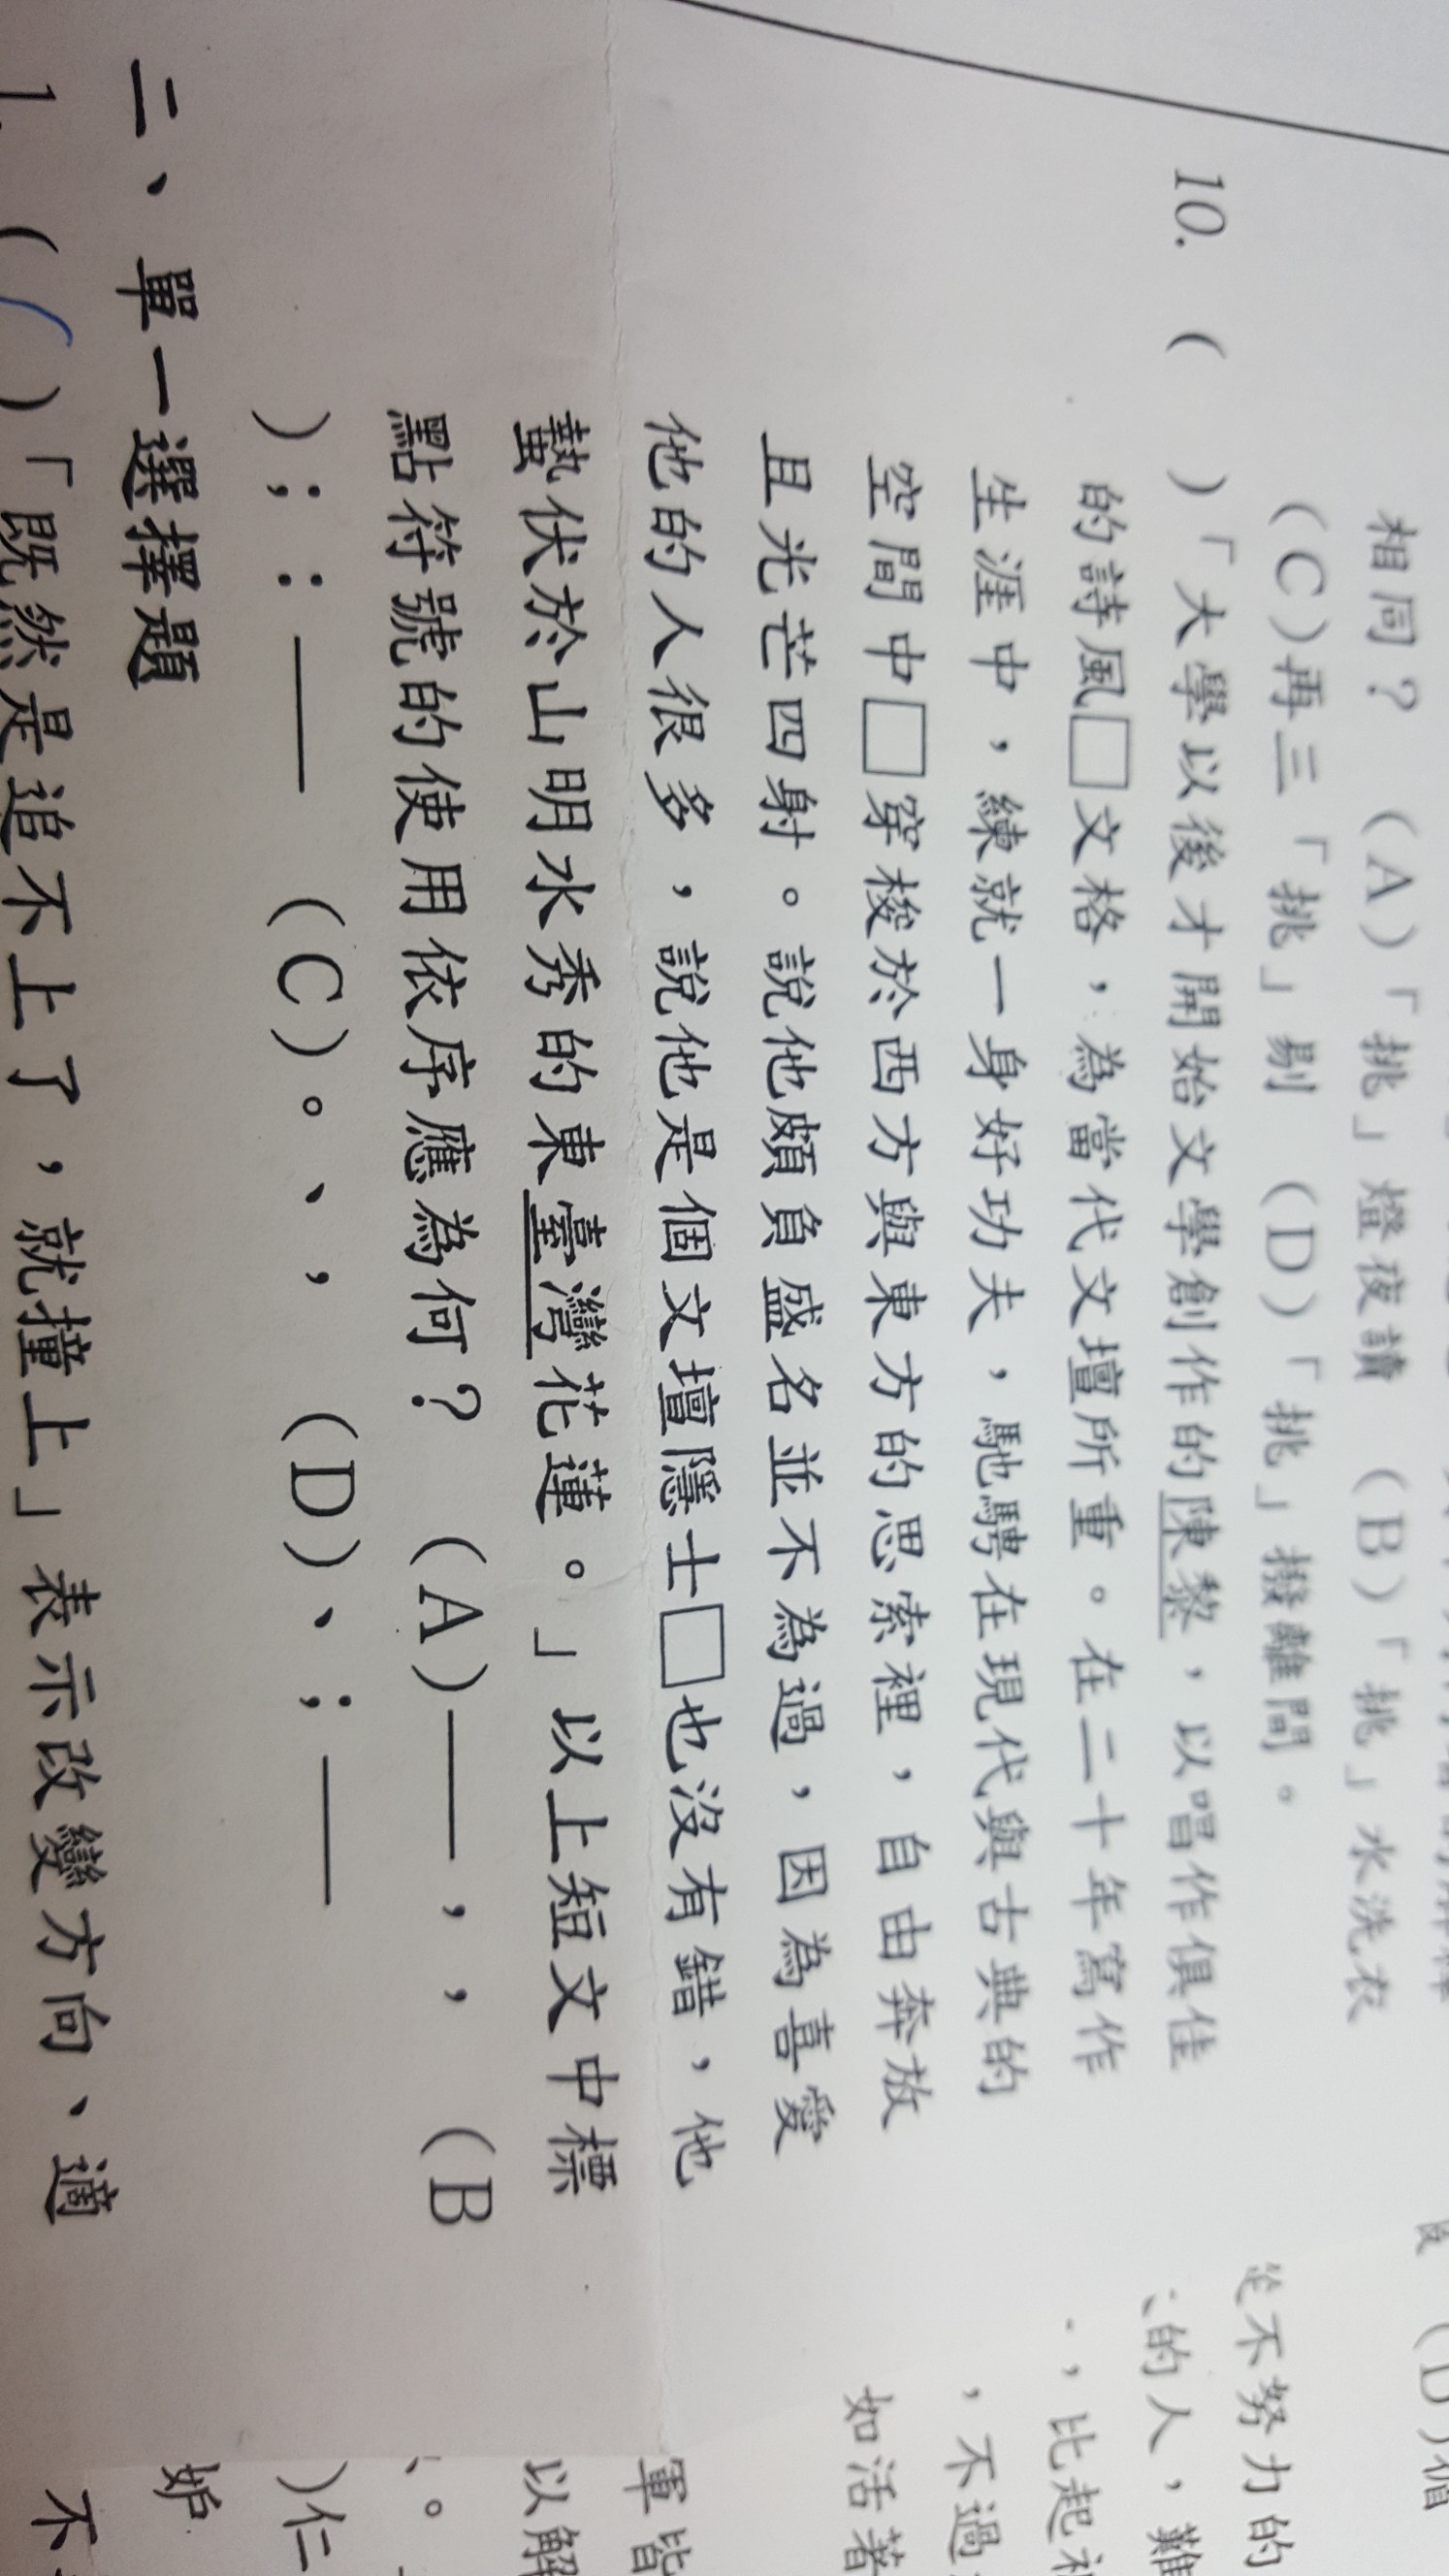 相同？ (A)「挑」燈夜讀 (B)「挑」水洗衣
(C)再三「挑」剔 (D)「挑」撥離間。
10. ( )「大學以後才開始文學創作的陳黎，以唱作俱佳
的詩風□文格，為當代文壇所重。在二十年寫作
生涯中，練就一身好功夫，馳騁在現代與古典的
空間中□穿梭於西方與東方的思索裡，自由奔放
且光芒四射。說他頗負盛名並不為過，因為喜愛
他的人很多，說他是個文壇隱士□也沒有錯，他
蟄伏於山明水秀的東臺灣花蓮。」以上短文中標
點符號的使用依序應為何？ (A)——，， (B
)；：—— (C)。、， (D)、；——
二、單一選擇題
1. ( )「既然是追不上了，就撞上」表示改變方向、適
從不努力的
的人，難
，比起
，不過
如活著
軍皆
以解
)仁
妒
不